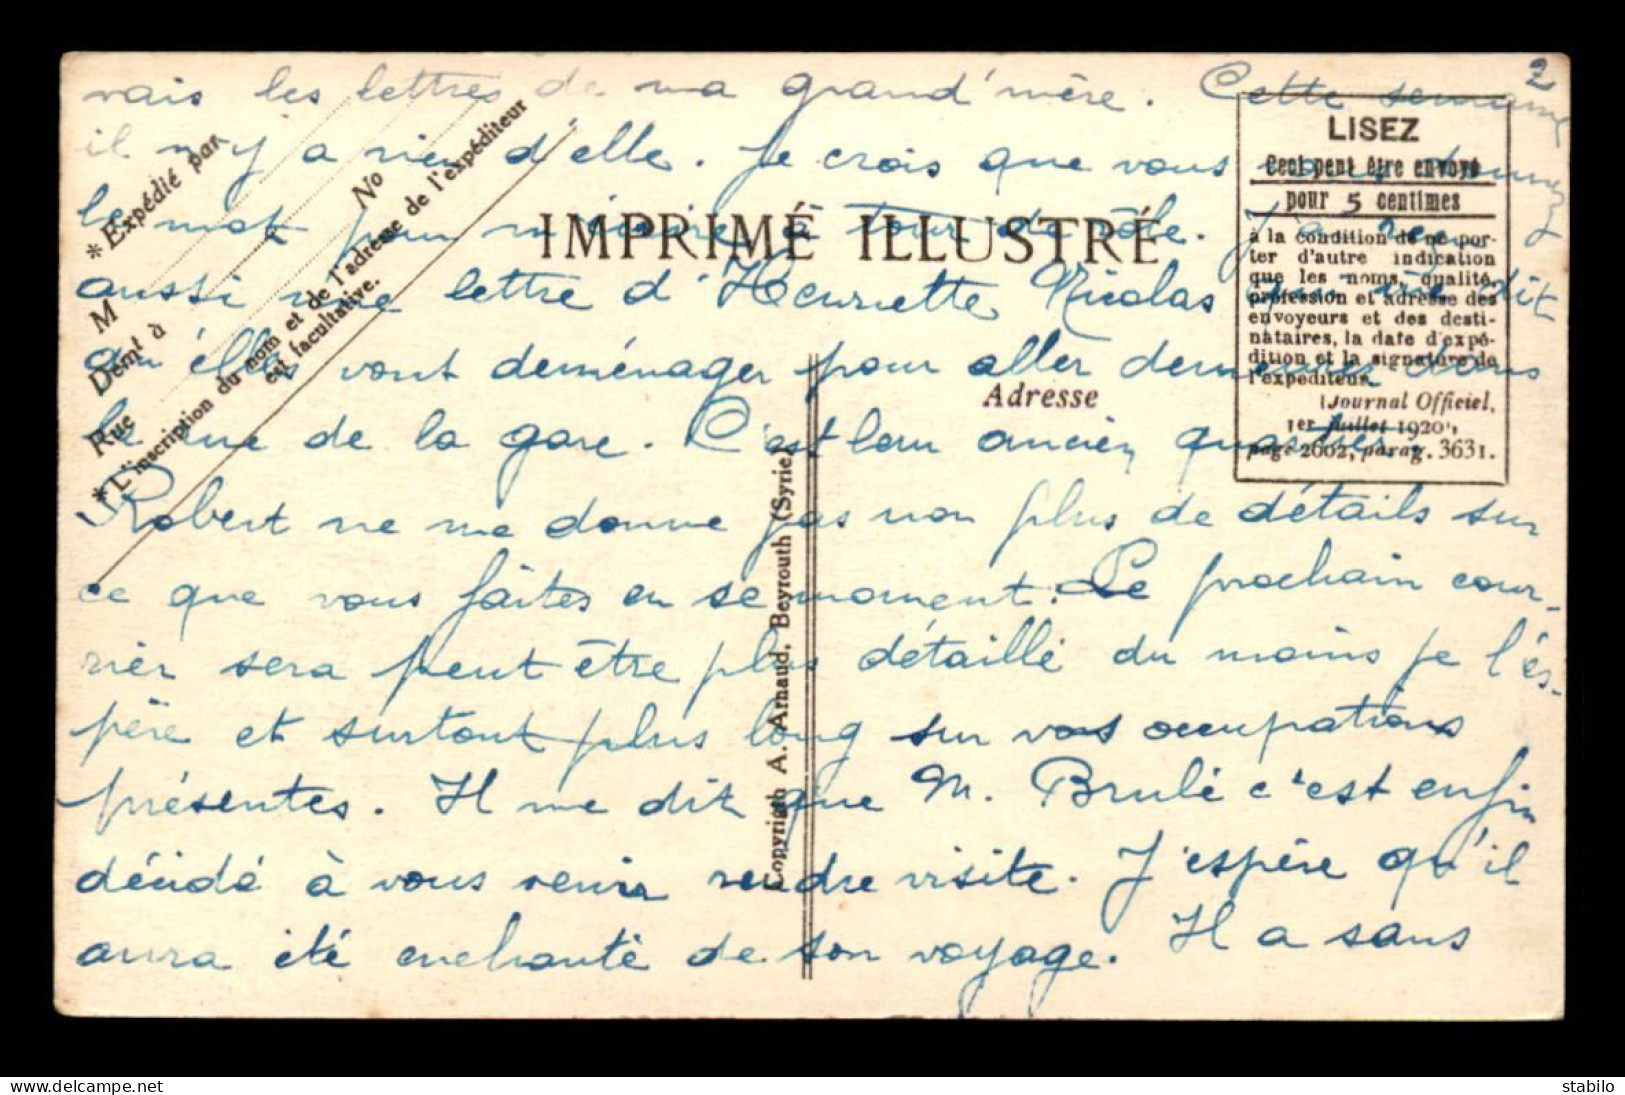 2
vais les lettres de ma grand'mère. Cette semaine
il n'y a rien d'elle. Je crois que vous vous donnez
le mot pour m'écrire à tour de rôle. J'ai reçu
aussi une lettre d'Henriette Nicolas qui me dit
qu'elles vont deménager pour aller demeurer dans
la rue de la gare. C'est leur ancien quartier.
Robert ne me donne pas non plus de détails sur
ce que vous faites en se moment. Le prochain cour-
rier sera peut être plus détaillé du moins je l'és-
père et surtout plus long sur vos occupations
présentes. Il me dit que M. Brulé c'est enfin
décidé à vous venir rendre visite. J'espère qu'il
aura été enchanté de son voyage. Il a sans
*Expédié par
M
Demt à
Rue
No
*L'inscription du nom et de l'adresse de l'expéditeur
est facultative.
IMPRIMÉ ILLUSTRÉ
Adresse
Copyright A. Arnaud, Beyrouth (Syrie)
LISEZ
Ceci peut être envoyé
pour 5 centimes
à la condition de ne por-
ter d'autre indication
que les noms, qualité,
profession et adresse des
envoyeurs et des desti-
nataires, la date d'expé-
dition et la signature de
l'expéditeur.
(Journal Officiel,
1er Juillet 1920,
page 2602, parag. 3631.
https://www.delcampe.net
stabilo